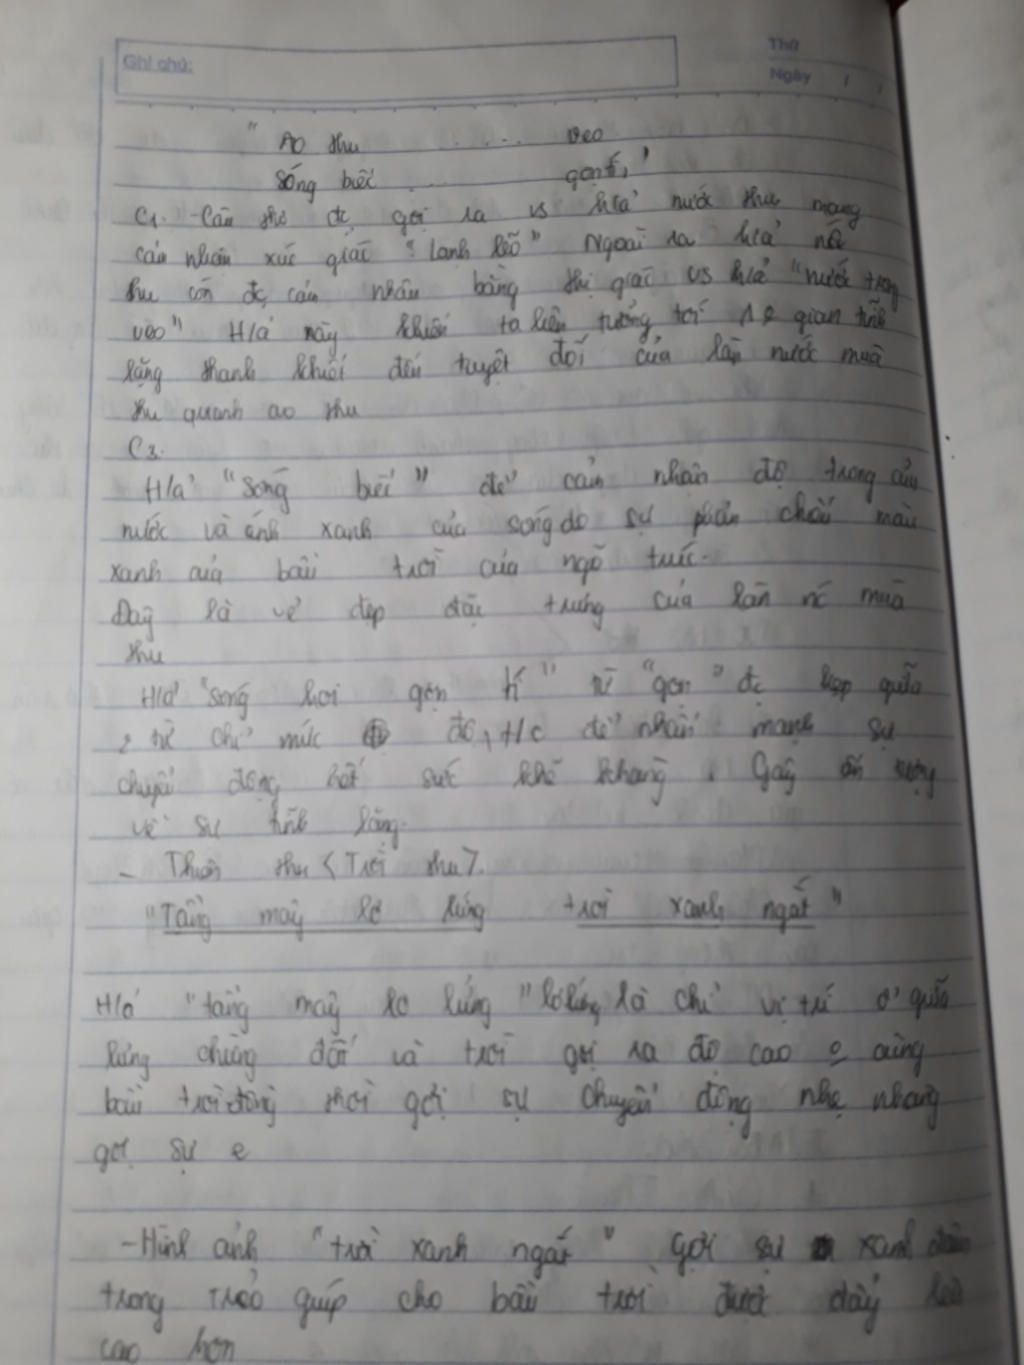 Ghi chú:
Thứ
Ngày / /
"Ao thu .... veo
Sóng biếc .... gợn tí,"
C1. - Câu thơ đc gợi ra vs h/ả nước thu mang
cảm nhận xúc giác "lạnh lẽo" Ngoài ra h/ả
thu còn đc cảm nhận bằng thị giác vs h/ả "nước trong
veo" H/ả này khiến ta liên tưởng tới 1 o gian tĩnh
lặng thanh khiết đến tuyệt đối của làn nước mùa
thu quanh ao thu
C3.
H/ả "Sóng biếc" để cảm nhận độ trong của
nước và ánh xanh của sóng do sự phản chiếu màu
xanh của bầu trời của ngõ trúc.
Đây là vẻ đẹp đặc trưng của làn nc mùa
thu
H/ả "sóng hơi gợn tí" từ "gợn" đc kẹp giữa
2 từ chỉ mức độ, t/c để nhấn mạnh sự
chuyển động hết sức khẽ khàng. Gây ấn tượng
về sự tĩnh lặng.
- Thuần thu <Trời thu>.
"Tầng mây lơ lửng trời xanh ngắt"
H/ả "tầng mây lơ lửng" lơ lửng là chỉ vị trí ở giữa
lưng chừng đất và trời gợi ra độ cao o cùng
bầu trời đồng thời gợi sự chuyển động nhẹ nhàng
gợi sự e
- Hình ảnh "trời xanh ngắt" gợi sự xanh
trong trẻo giúp cho bầu trời được đẩy lên
cao hơn